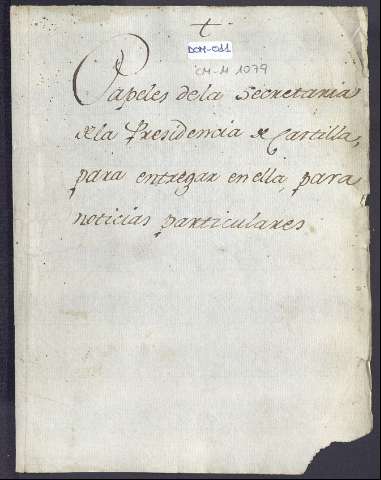 †
DCM-011
CM-M 1079
Papeles dela Secretaria
de la Presidencia de Castilla,
para entregar en ella, para
noticias particulares